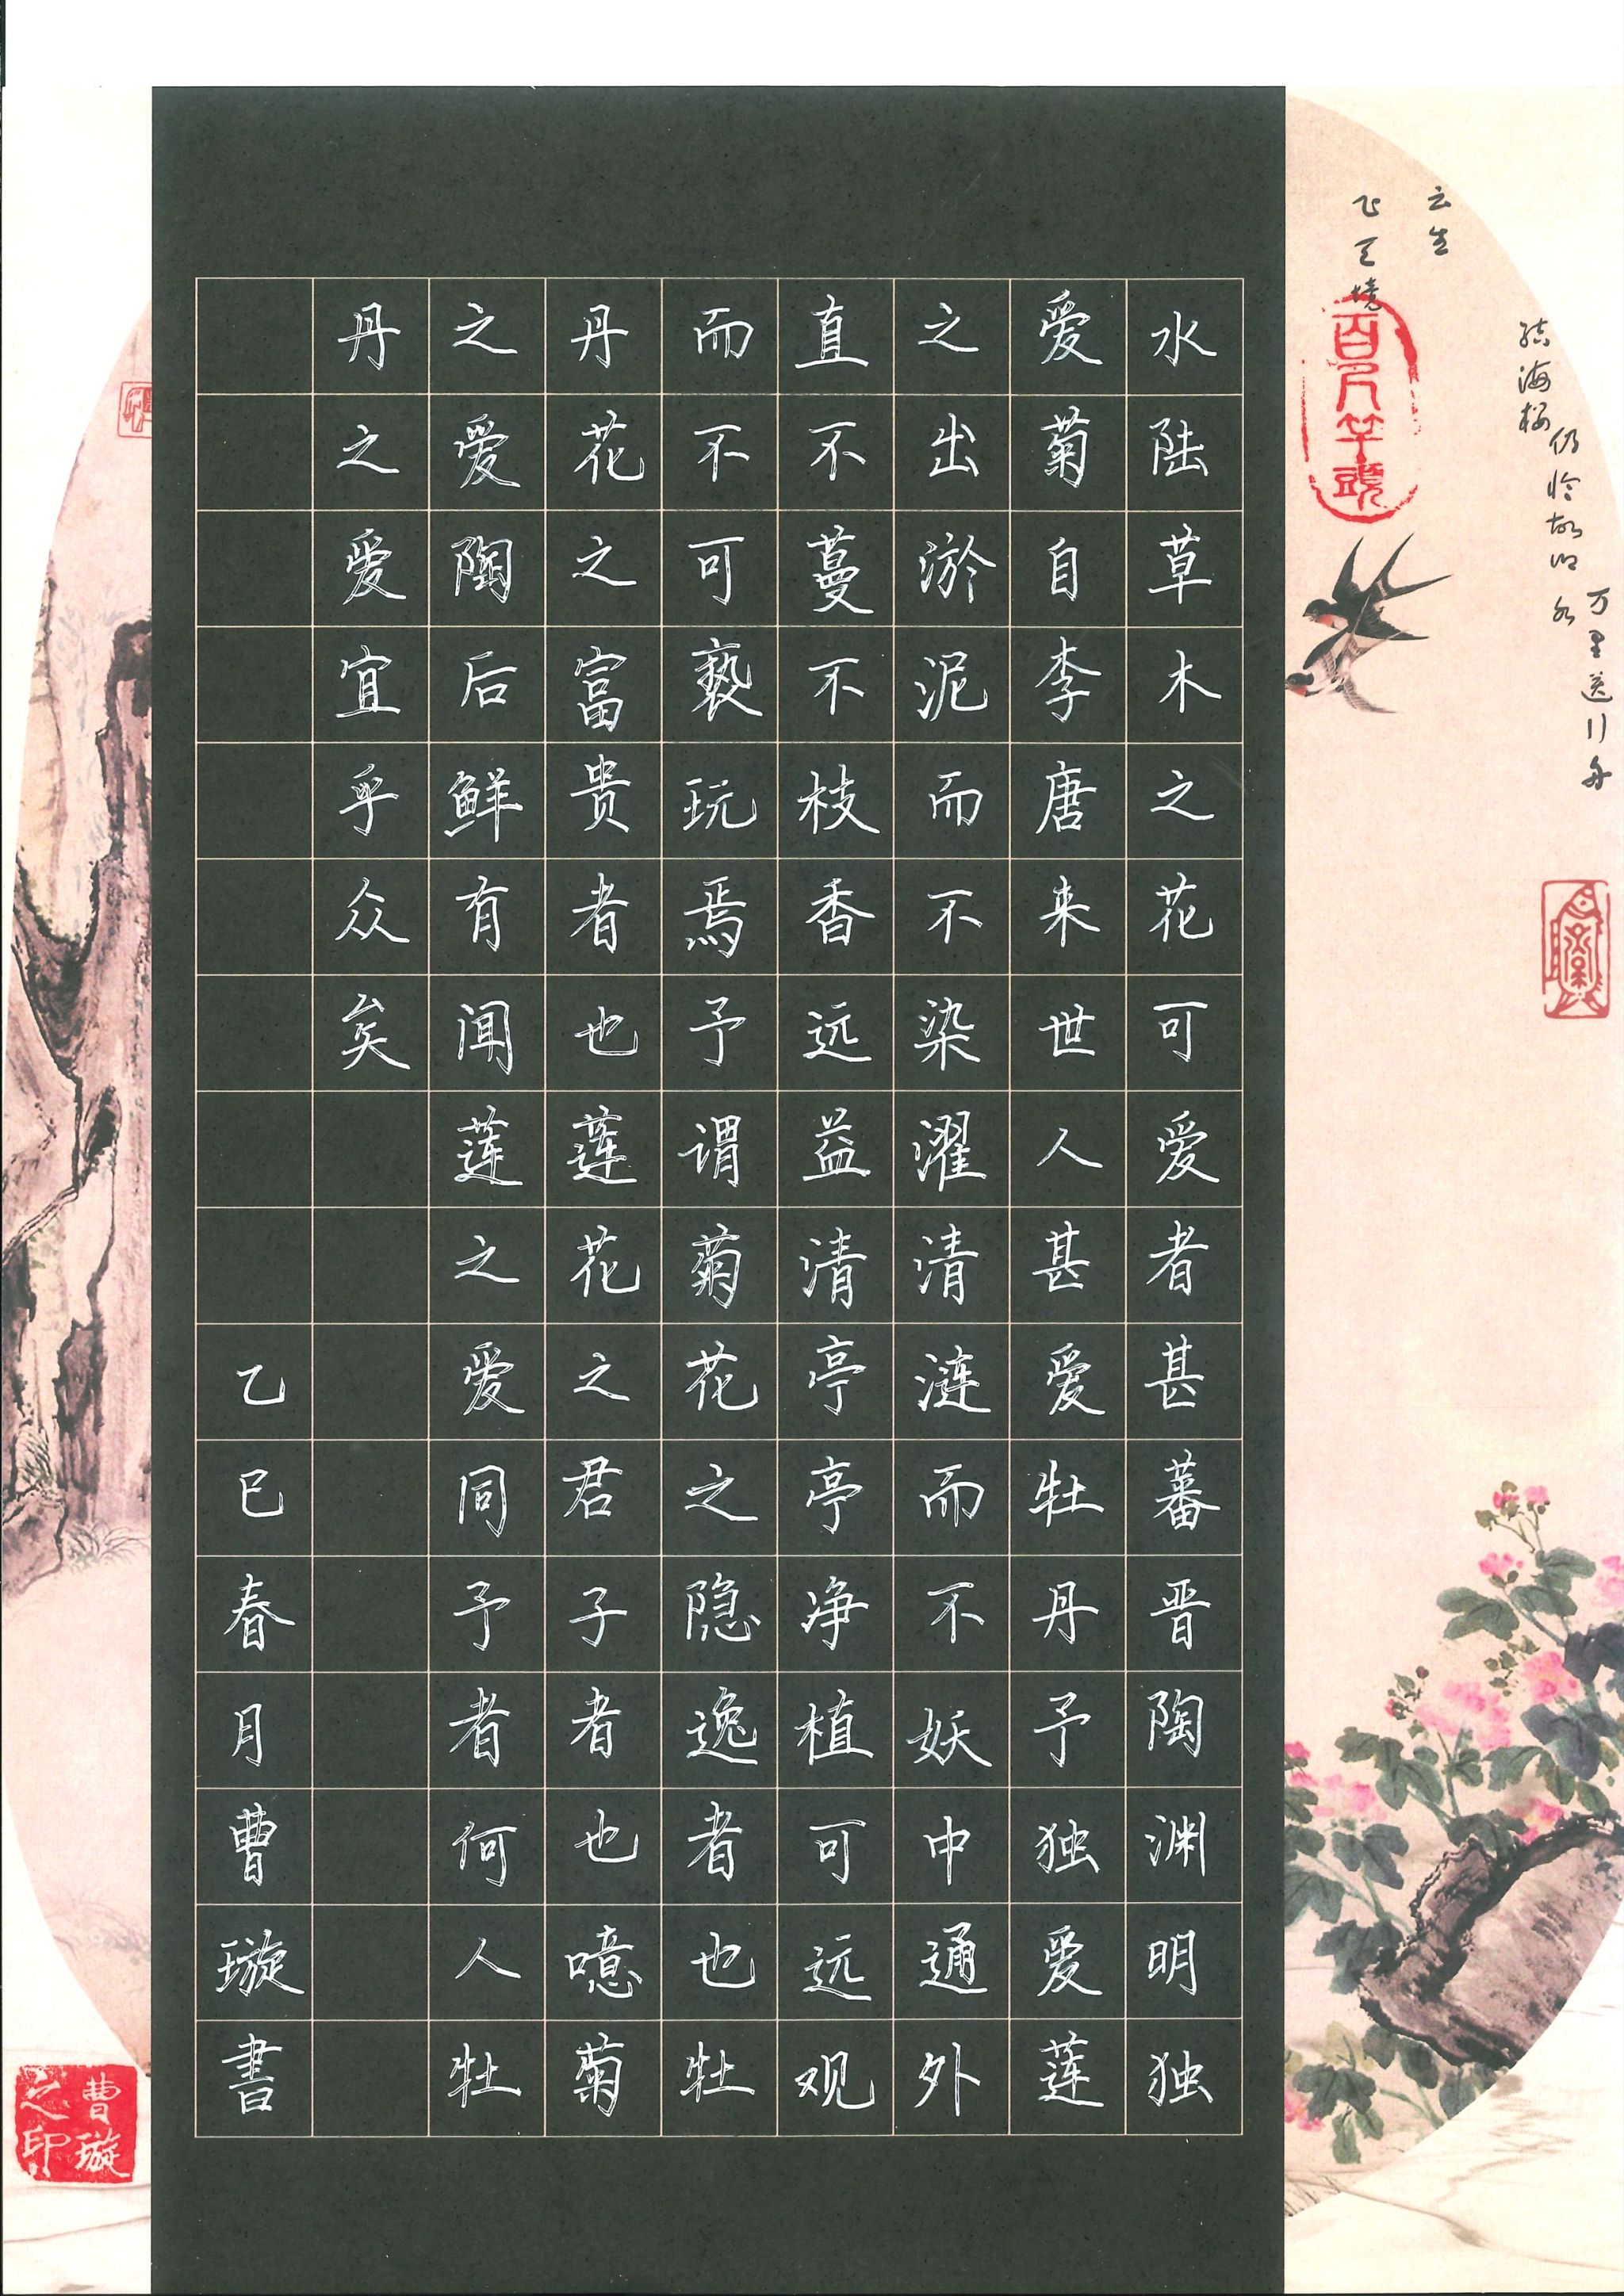 水陆草木之花可爱者甚蕃晋陶渊明独
爱菊自李唐来世人甚爱牡丹予独爱莲
之出淤泥而不染濯清涟而不妖中通外
直不蔓不枝香远益清亭亭净植可远观
而不可亵玩焉予谓菊花之隐逸者也牡
丹花之富贵者也莲花之君子者也噫菊
之爱陶后鲜有闻莲之爱同予者何人牡
丹之爱宜乎众矣
乙巳春月曹璇書
曹璇之印
云生
结海楼
万里送行舟